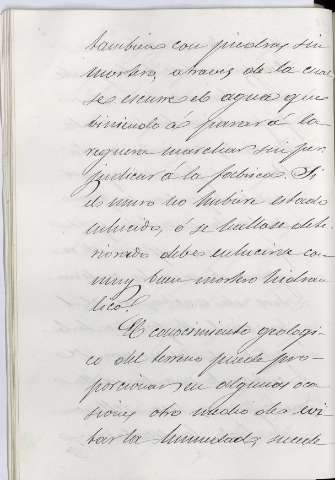 tambien con piedras sin
mortero, atraves de la cual
se escurre el agua que
viniendo á parar á la
reguera marchar sin per-
judicar á la fabrica. Si
el muro no hubiera estado
enlucido, ó se hallase dete-
riorado debe enlucirse con
muy buen mortero hidrau-
lico.
El conocimiento geologi-
co del terreno puede pro-
porcionar en algunas oca-
siones otro medio de evi-
tar la humedad; sucede